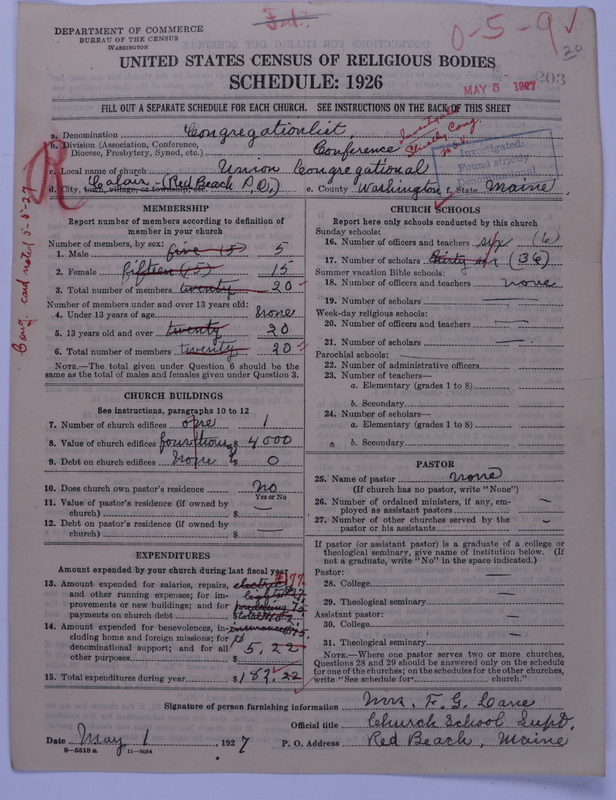 DEPARTMENT OF COMMERCE
BUREAU OF THE CENSUS
WASHINGTON
0-5-9 ✓
20
UNITED STATES CENSUS OF RELIGIOUS BODIES
SCHEDULE: 1926
MAY 5 1927
203
FILL OUT A SEPARATE SCHEDULE FOR EACH CHURCH. SEE INSTRUCTIONS ON THE BACK OF THIS SHEET
a. Denomination Congregationalist,
b. Division (Association, Conference, Diocese, Presbytery, Synod, etc.) Conference
Strictly Cong.
Investigated:
Found strictly
c. Local name of church Union Congregational
d. City, town, village, or township, etc. Calais - (Red Beach P.O.) e. County Washington f. State Maine
R
Cong. card noted 5-5-27
MEMBERSHIP
Report number of members according to definition of member in your church
Number of members, by sex:
1. Male five (5) 5
2. Female fifteen (15) 15
3. Total number of members twenty 20
Number of members under and over 13 years old:
4. Under 13 years of age none
5. 13 years old and over twenty 20
6. Total number of members twenty 20
NOTE.—The total given under Question 6 should be the same as the total of males and females given under Question 3.
CHURCH BUILDINGS
See instructions, paragraphs 10 to 12
7. Number of church edifices one 1
8. Value of church edifices four thous $ 4000
9. Debt on church edifices None $ 0
10. Does church own pastor's residence No
Yes or No
11. Value of pastor's residence (if owned by church) $ —
12. Debt on pastor's residence (if owned by church) $ —
EXPENDITURES
Amount expended by your church during last fiscal year
13. Amount expended for salaries, repairs, and other running expenses; for improvements or new buildings; and for payments on church debt
electric
lights
preaching
14. Amount expended for benevolences, including home and foreign missions; for denominational support; and for all other purposes
insurance
5.22
15. Total expenditures during year $
CHURCH SCHOOLS
Report here only schools conducted by this church
Sunday schools:
16. Number of officers and teachers six (6)
17. Number of scholars thirty six (36)
Summer vacation Bible schools:
18. Number of officers and teachers none
19. Number of scholars —
Week-day religious schools:
20. Number of officers and teachers —
21. Number of scholars —
Parochial schools: —
22. Number of administrative officers
23. Number of teachers—
a. Elementary (grades 1 to 8)
b. Secondary
24. Number of scholars—
a. Elementary (grades 1 to 8)
b. Secondary
PASTOR
25. Name of pastor none
(If church has no pastor, write "None")
26. Number of ordained ministers, if any, employed as assistant pastors —
27. Number of other churches served by the pastor or his assistants —
If pastor (or assistant pastor) is a graduate of a college or theological seminary, give name of institution below. (If not a graduate, write "No" in the space indicated.)
Pastor:
28. College —
29. Theological seminary —
Assistant pastor:
30. College —
31. Theological seminary —
NOTE.—Where one pastor serves two or more churches, Questions 28 and 29 should be answered only on the schedule for one of the churches; on the schedules for the other churches, write "See schedule for church."
Signature of person furnishing information Mrs. F. G. Lane
Official title Church School Supt.
Date May 1, 1927 P. O. Address Red Beach, Maine
8-5518a 11-9084